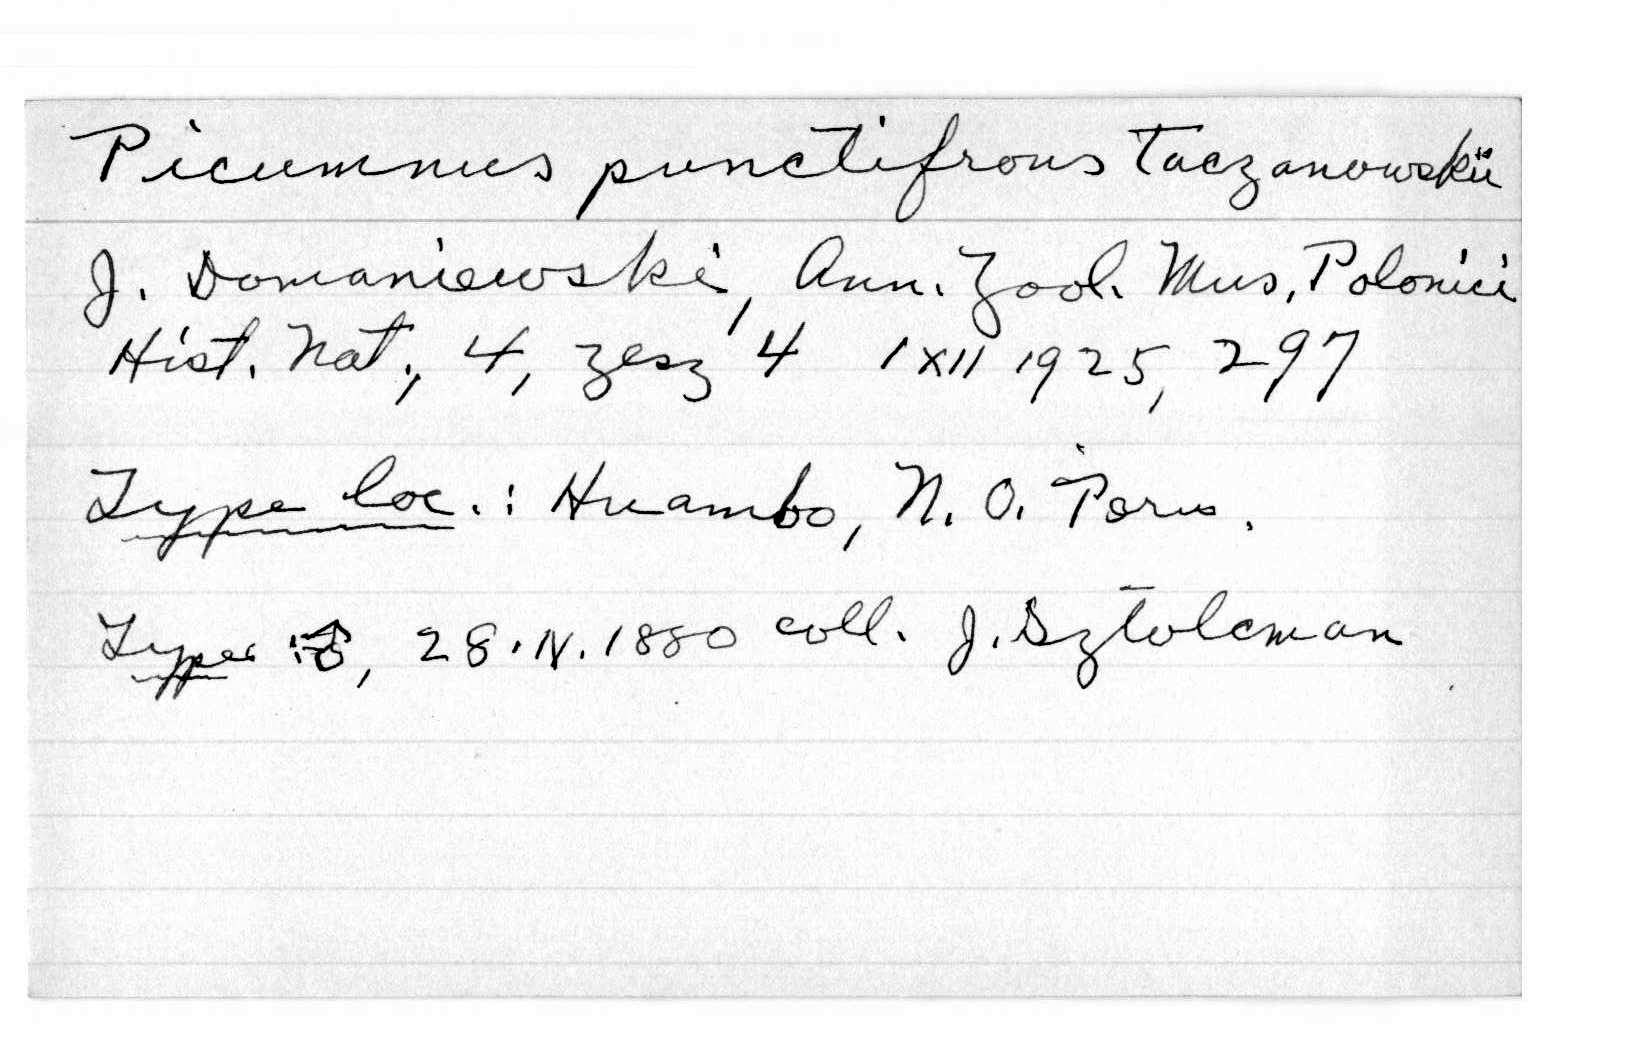 Picumnus punctifrons taczanowskii
J. Domaniewski, Ann. Zool. Mus. Polonici
Hist. Nat., 4, zesz 4 1 XII 1925, 297
Type loc.: Huambo, N. O. Peru.
Type: ♂, 28.IV.1880 coll. J. Sztolcman